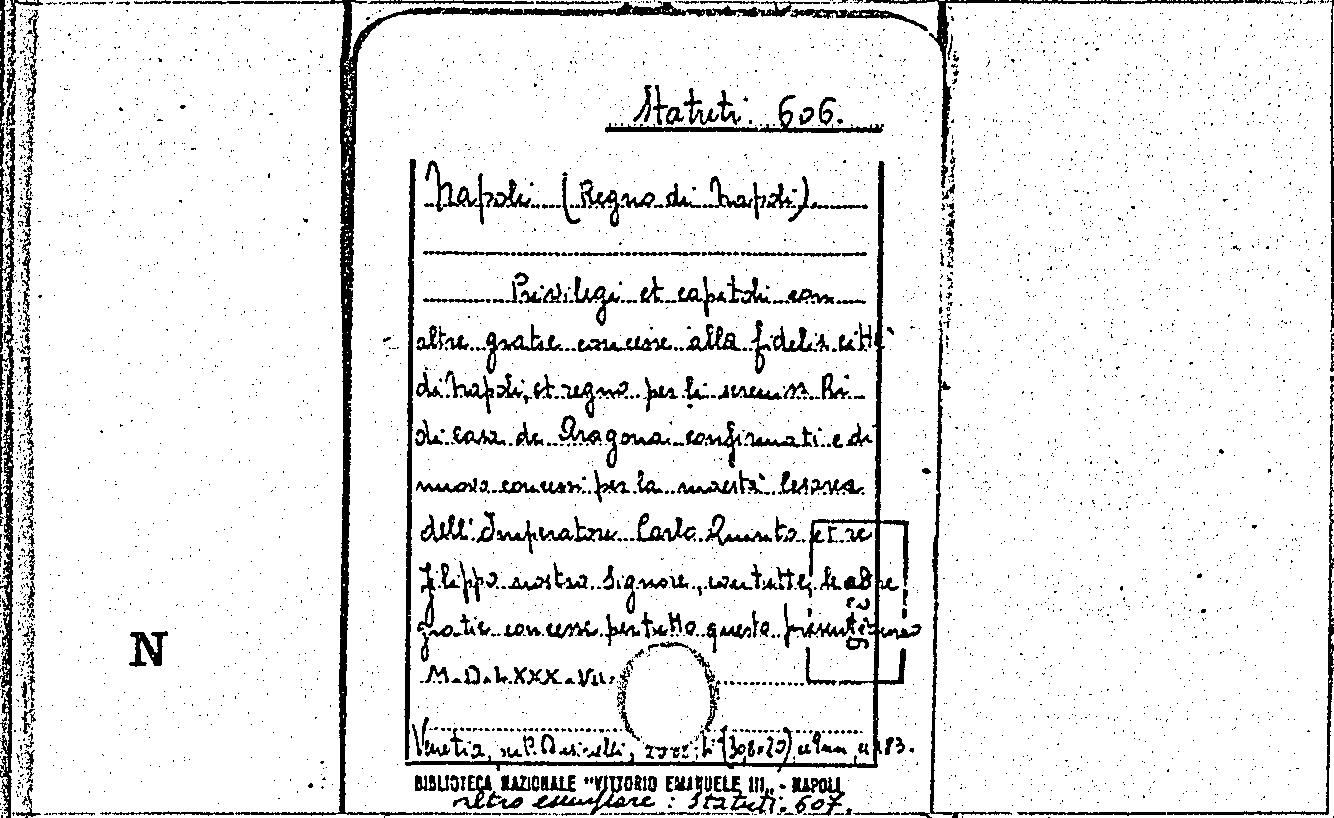 Statuti. 606.
Napoli (Regno di Napoli).
Privilegi et capitoli com
altre gratie concesse alla fidelis. città
di Napoli, et regno per li sereniss. Ri
di casa de Aragona: confirmati e di
nuovo concessi per la maestà Cesarea
dell'Imperatore Carlo Quinto et re
Filippo nostro Signore, con tutte le altre
gratie concesse per tutto questo presente anno
M.D.LXXX.VII.
Venetia, 183.
BIBLIOTECA NAZIONALE "VITTORIO EMANUELE III„ - NAPOLI
altro esemplare: Statuti. 607.
N